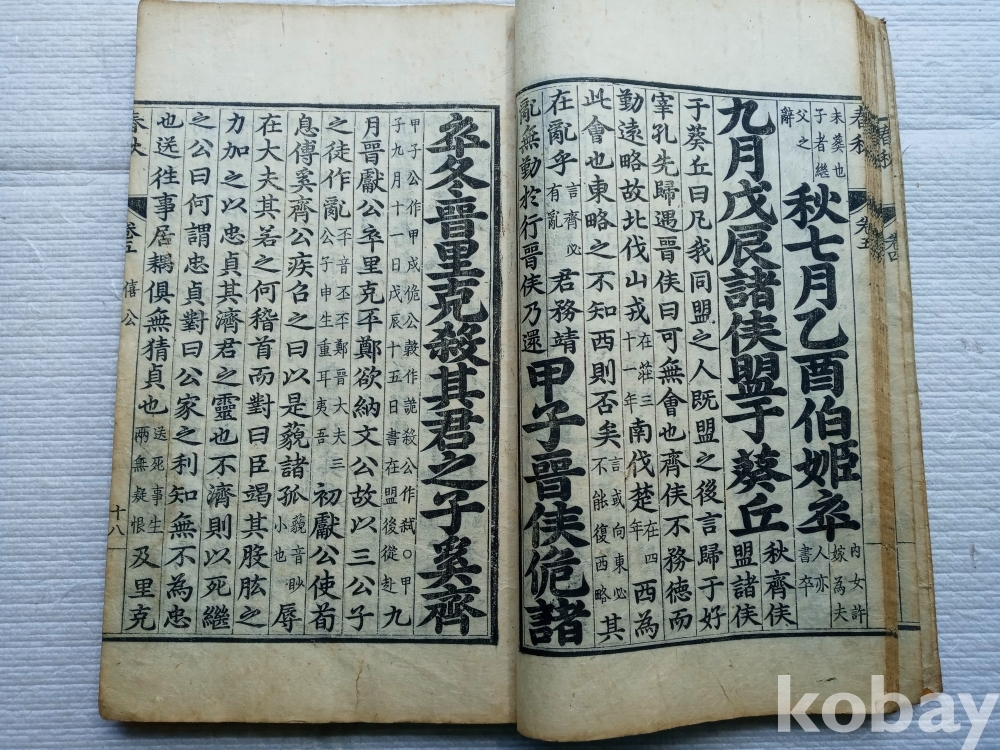 春秋
卷四
春秋
卷五
未葬也子者繼父之辭秋七月乙酉伯姬卒內女許嫁為夫人亦書卒
九月戊辰諸侯盟于葵丘秋齊侯盟諸侯
于葵丘曰凡我同盟之人既盟之後言歸于好
宰孔先歸遇晉侯曰可無會也齊侯不務德而
勤遠略故北伐山戎在莊三十一年南伐楚在四年西為
此會也東略之不知西則否矣言或向東必不能復西略其
在亂乎言齊必有亂君務靖
亂無勤於行晉侯乃還
甲子晉侯佹諸
卒冬晉里克殺其君之子奚齊
甲子公作甲戌佹公穀作詭殺公作弑○甲子九月十一日戊辰十五日書在盟後從赴九
月晉獻公卒里克㔻鄭欲納文公故以三公子
之徒作亂㔻音丕㔻鄭晉大夫三公子申生重耳夷吾初獻公使荀
息傅奚齊公疾召之曰以是藐諸孤藐音眇小也辱
在大夫其若之何稽首而對曰臣竭其股肱之
力加之以忠貞其濟君之靈也不濟則以死繼
之公曰何謂忠貞對曰公家之利知無不為忠
也送往事居耦俱無猜貞也送死事生兩無疑恨及里克
春秋
卷五
僖公
十八
kobay